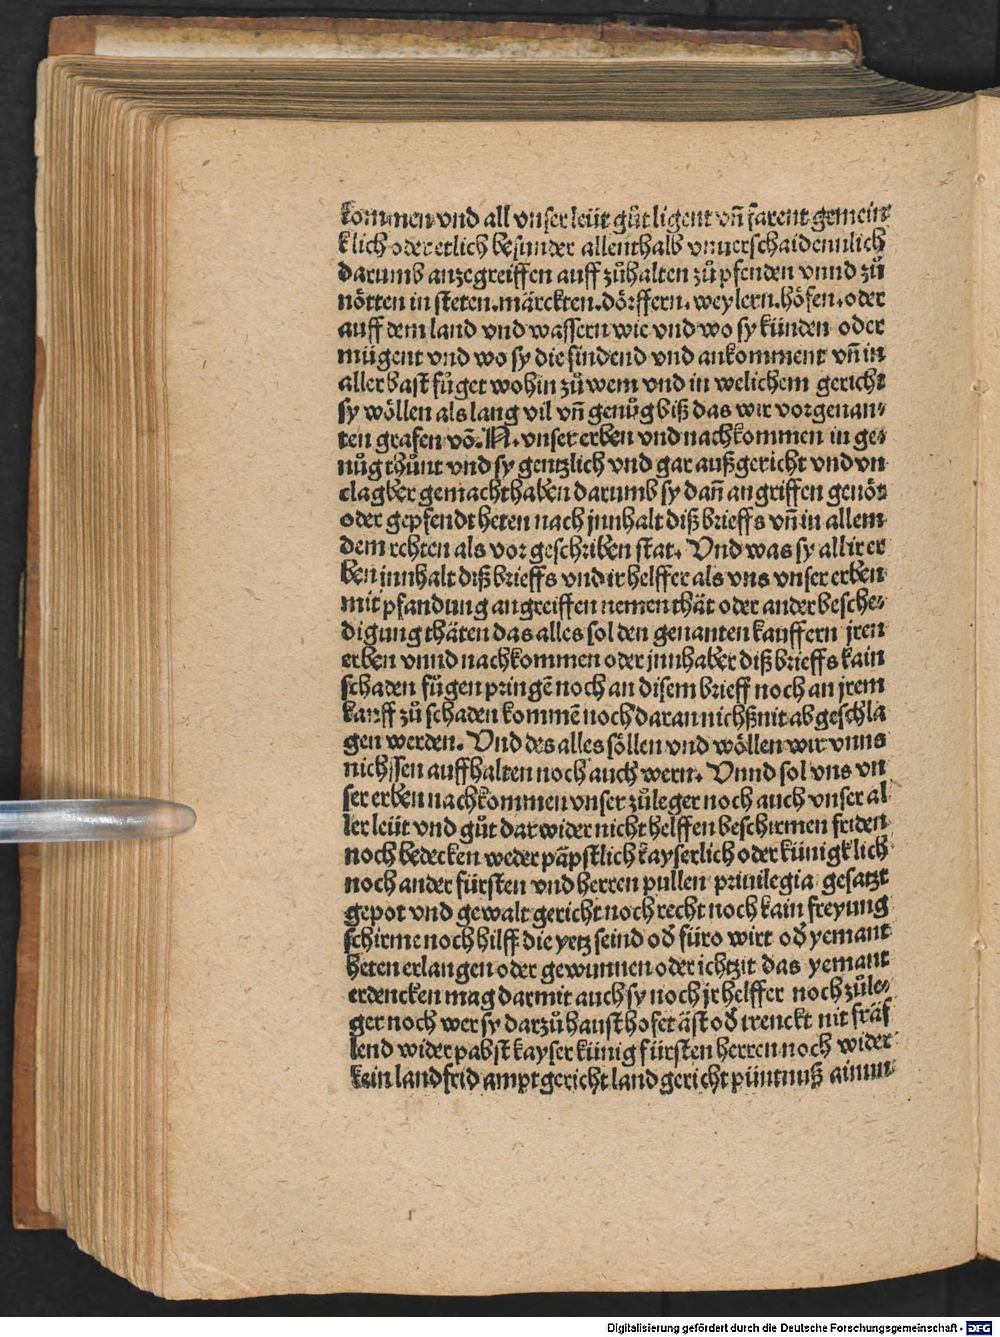 kommen vnd all vnser leüt gůt ligent vñ farent gemein
klich oder etlich besunder allenthalb vnuerschaidennlich
darumb anzegreiffen auff zůhalten zů pfenden vnnd zů
nötten in steten. märckten. dörffern. weylern. höfen. oder
auff dem land vnd wassern wie vnd wo sy künden oder
mügent vnd wo sy die findend vnd ankomment vñ in
aller bast fůget wohin zů wem vnd in welichem gericht
sy wöllen als lang vil vñ genůg biß das wir vorgenan⸗
ten grafen võ. N. vnser erben vnd nachkommen in ge⸗
nůg thůnt vnd sy gentzlich vnd gar außgericht vnd vn
clagber gemacht haben darumb sy dañ an griffen genöt
oder gepfendt heten nach jnnhalt diß brieffs vñ in allem
dem rechten als vor geschriben stat. Vnd was sy all ir er
ben innhalt diß brieffs vnd ir helffer als vns vnser erben
mit pfandung angreiffen nemen thät oder ander besche⸗
digung thäten das alles sol den genanten kauffern jren
erben vnnd nachkommen oder jnnhaber diß brieffs kain
schaden fůgen pringẽ noch an disem brieff noch an jrem
kauff zů schaden kommẽ noch daran nichß nit ab geschla
gen werden. Vnd des alles söllen vnd wöllen wir vnns
nichssen auffhalten noch auch wern. Vnnd sol vns vn
ser erben nachkommen vnser zůleger noch auch vnser al
ler leüt vnd gůt dar wider nicht helffen beschirmen friden
noch bedecken weder päpstlich kayserlich oder künigklich
noch ander fürsten vnd herren pullen priuilegia gesatzt
gepot vnd gewalt gericht noch recht noch kain freyung
schirme noch hilff die yetz seind oď füro wirt oď yemant
heten erlangen oder gewunnen oder ichtzit das yemant
erdencken mag darmit auch sy noch jr helffer noch zůle⸗
ger noch wer sy darzů haust hofet äst oď trenckt nit fräf
lend wider pabst kayser künig fürsten herren noch wider
kein landfrid ampt gericht land gericht püntnuß ainm⸗
Digitalisierung gefördert durch die Deutsche Forschungsgemeinschaft - DFG